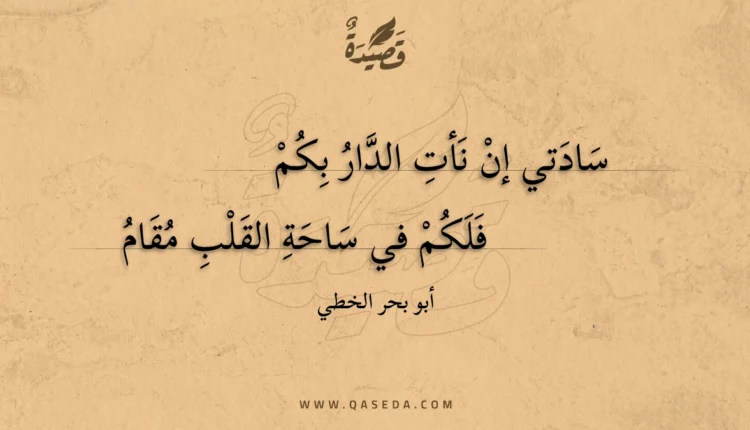 قَصِيْدَةٌ
سَادَتي إنْ نَأتِ الدَّارُ بِكُمْ
فَلَكُمْ في سَاحَةِ القَلْبِ مُقَامُ
أبو بحر الخطي
WWW.QASEDA.COM